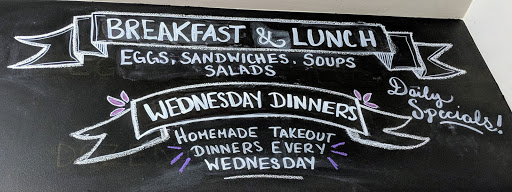 BREAKFAST & LUNCH
EGGS, SANDWICHES, SOUPS
SALADS
Daily
Specials!
WEDNESDAY DINNERS
HOMEMADE TAKEOUT
DINNERS EVERY
WEDNESDAY